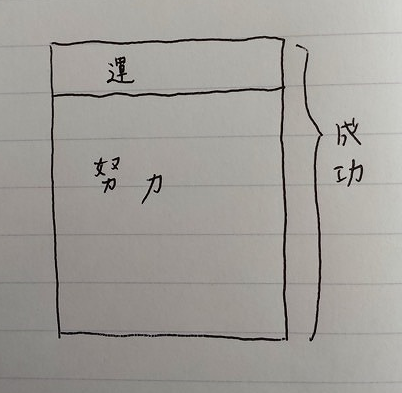 運
努力
成功